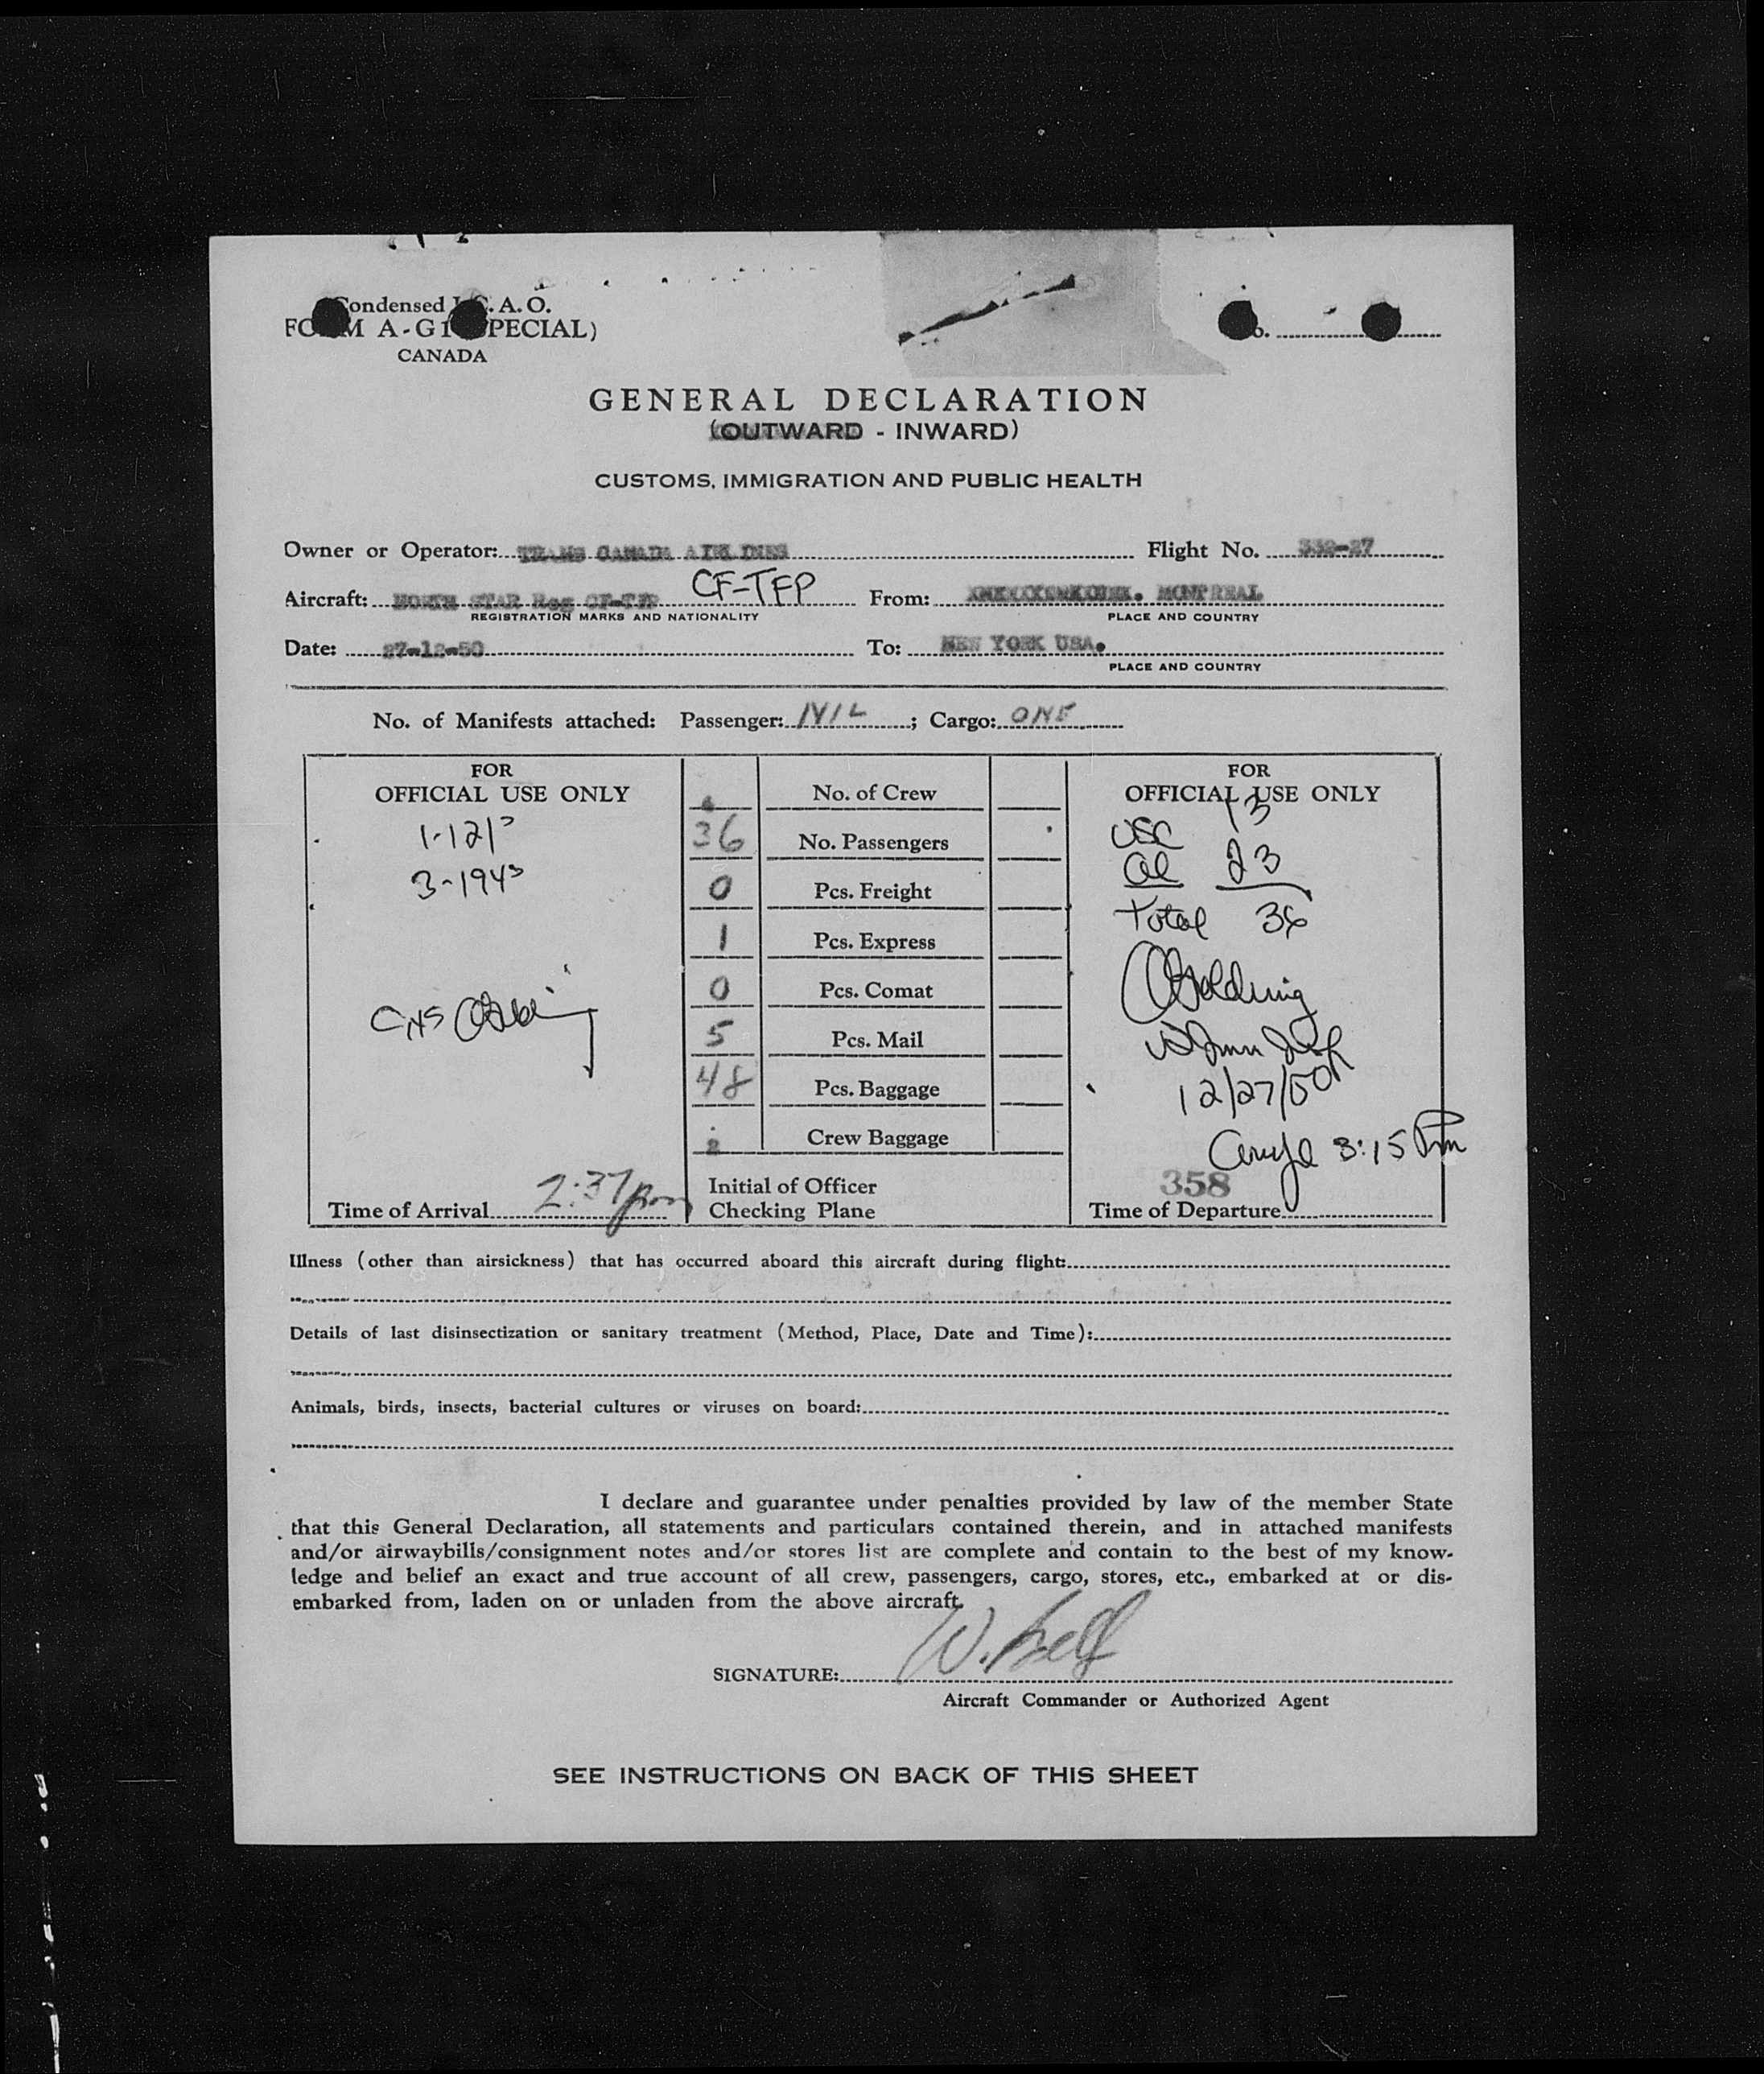 Condensed I.C.A.O.
FORM A-G1 (SPECIAL)
CANADA
GENERAL DECLARATION
(OUTWARD - INWARD)
CUSTOMS, IMMIGRATION AND PUBLIC HEALTH
Owner or Operator: TRANS CANADA AIR LINES Flight No.
Aircraft: NORTH STAR Reg CF-TFP CF-TFP From: MONTREAL
REGISTRATION MARKS AND NATIONALITY PLACE AND COUNTRY
Date: 27-12-50 To: NEW YORK USA.
PLACE AND COUNTRY
No. of Manifests attached: Passenger: NIL; Cargo: ONE
FOR FOR
OFFICIAL USE ONLY No. of Crew OFFICIAL USE ONLY
36 No. Passengers USC 13
0 Pcs. Freight al 23
1 Pcs. Express Total 36
0 Pcs. Comat
5 Pcs. Mail
48 Pcs. Baggage 12/27/50
Crew Baggage 3:15 Pm
Initial of Officer 358
Time of Arrival 2:37 pm Checking Plane Time of Departure
Illness (other than airsickness) that has occurred aboard this aircraft during flight:
Details of last disinsectization or sanitary treatment (Method, Place, Date and Time):
Animals, birds, insects, bacterial cultures or viruses on board:
I declare and guarantee under penalties provided by law of the member State
that this General Declaration, all statements and particulars contained therein, and in attached manifests
and/or airwaybills/consignment notes and/or stores list are complete and contain to the best of my know-
ledge and belief an exact and true account of all crew, passengers, cargo, stores, etc., embarked at or dis-
embarked from, laden on or unladen from the above aircraft.
SIGNATURE: W. Bell
Aircraft Commander or Authorized Agent
SEE INSTRUCTIONS ON BACK OF THIS SHEET